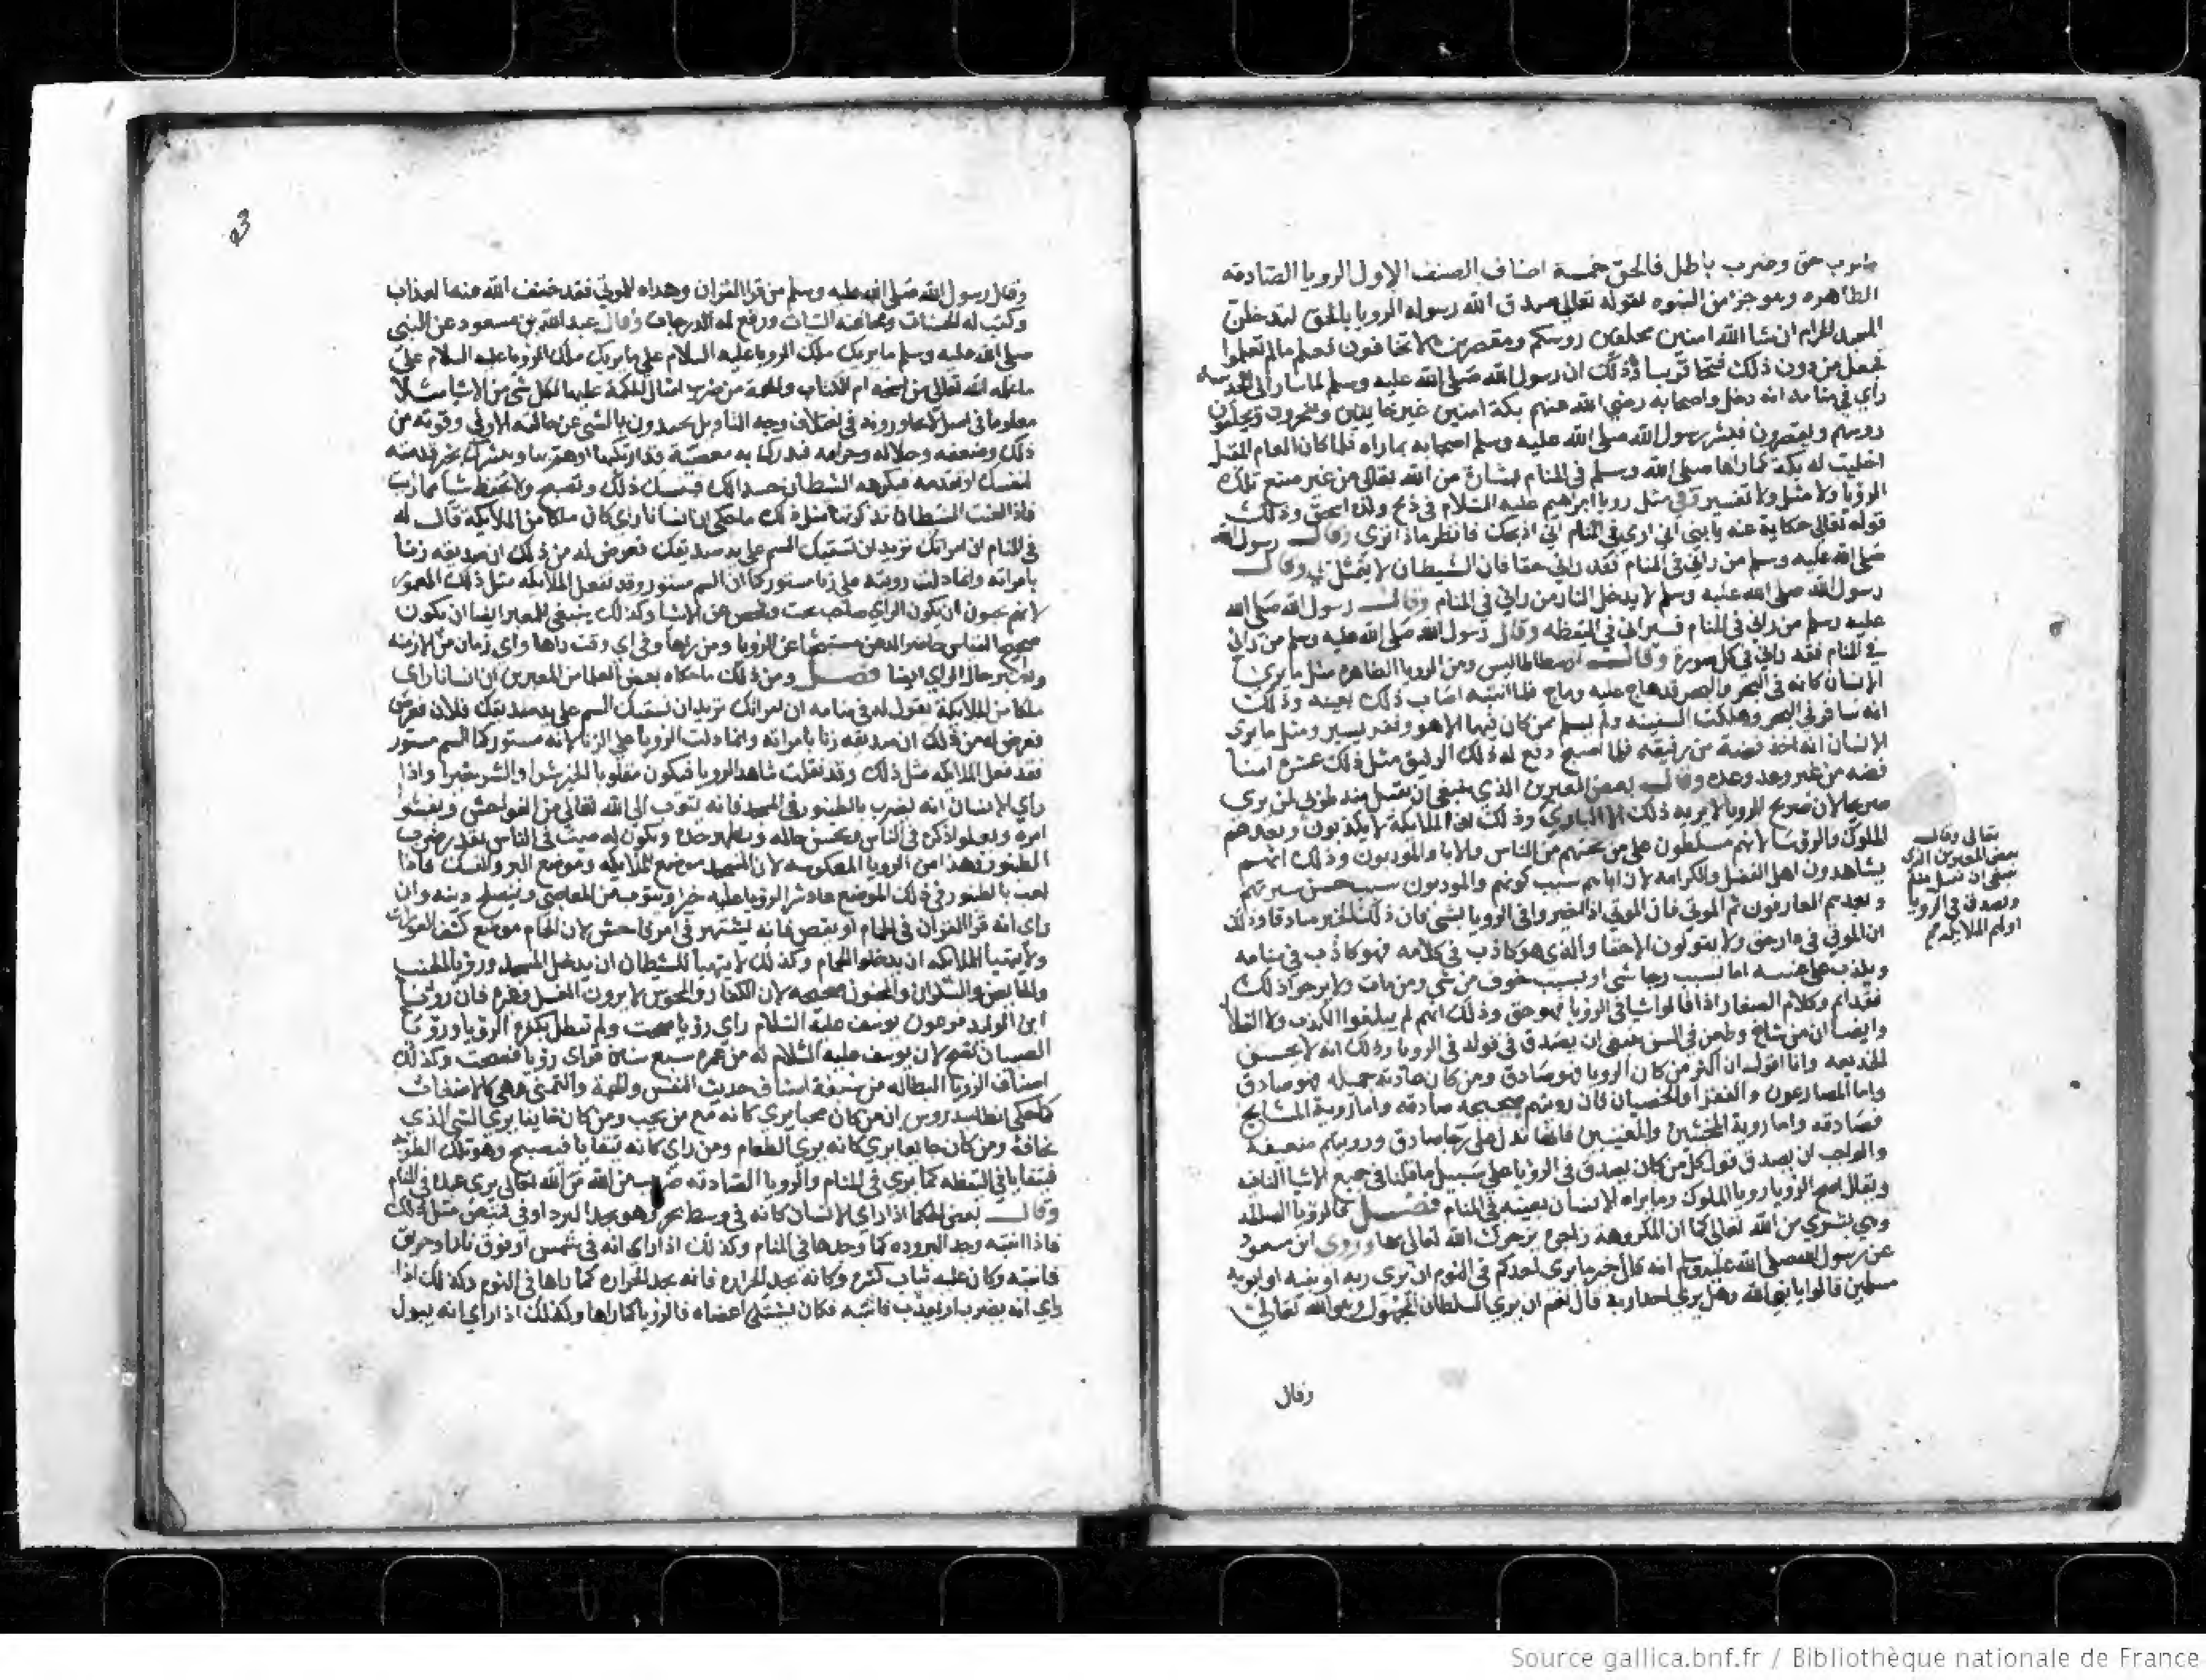 ضرب حق وضرب باطل فالحق خمسة اصناف الصنف الاول الرويا الصادقه
الظاهره وهو جز من النبوه لقوله تعالى صدق الله رسوله الرويا بالحق لتدخلن
المسجد الحرام ان شا الله امنين محلقين روسكم ومقصرين لا تخافون فعلم ما لم تعلموا
فجعل من دون ذلك فتحا قريبا وذلك ان رسول الله صلى الله عليه وسلم لما سار الى
راي في منامه انه دخل واصحابه رضي الله عنهم بمكة امنين غير خايفين
روسهم ويقصرون فبشر رسول الله صلى الله عليه وسلم اصحابه بما راه فلما كان العام المقبل
اخليت له مكة كما راها صلى الله وسلم في المنام بشارة من الله تعالى من غير
الرويا ولا مثل ولا تفسير وهي مثل رويا ابراهيم عليه السلام في ذبح ولده وذلك
قوله تعالى حكاية عنه يا بنى اني ارى في المنام اني اذبحك فانظر ماذا ترى وقال رسول الله
صلى الله عليه وسلم من راني في المنام فقد راني حقا فان الشيطان لا يتمثل بي وقال
رسول الله صلى الله عليه وسلم لا يدخل النار من راني في المنام وقال رسول الله صلى الله
عليه وسلم من راني في المنام فسيراني في اليقظه وقال رسول الله صلى الله عليه وسلم من راني
في المنام فقد راني في كل صورة وقال ارسطاطاليس ومن الرويا الظاهره مثل ما يرى
الانسان كانه في البحر والبحر قد هاج عليه وماج فلما انتبه اصاب ذلك بعينه وذلك
انه سافر في البحر وهلكت السفينه ولم يسلم ممن كان فيها الا هو ونفر يسير ومثل ما يرى
الانسان انه اخذ فضة من رفيقه فلما اصبح دفع له ذلك الرفيق مثل ذلك عشرة
فضه من غير وعد وعده وقال بعض المعبرين الذي ينبغي ان يقبل
صريحا لان صريح الرويا لا يريد ذلك الا الباري وذلك ان الملايكة لا يكذبون وبعدهم
الملوك لانهم مسلطون على من تحتهم من الناس والابا والمودبون وذلك انهم
يشاهدون اهل الفضل والكرامه لان اباهم سبب كونهم والمودبون سبب حسن سيرتهم
وبعدهم العارفون ثم الموتى فان الموتى اذا اخبروا في الرويا بشي كان ذلك الخبر صادقا وذلك
ان الموتى في دار حق ولا يقولون الا حقا والذي هو كاذب في كلامه فهو كاذب في منامه
اما بسبب رجا شي او بسبب خوف من شي ومن مات ولا يرجوا ذلك
وكلام الصغار اذا قالوا شيا في الرويا فهو حق وذلك انهم لم يبلغوا الكذب
وايضا ان من شاخ وطعن في السن ينبغي ان يصدق في قوله في الرويا وذلك انه لا يحسن
الخديعه وانا اقول ان اكثر من كان الرويا فهو صادق ومن كان عادته جميله فهو صادق
واما المصارعون والفقرا والخصيان فان رويتهم صحيحه صادقه واما روية المشايخ
فصادقه واما روية المخنثين والمغنيين فانها تدل على صادق ورويتهم ضعيفه
والواجب ان يصدق قول كل من كان يصدق في الرويا على سبيل ما قلنا في جميع الاشيا النافعه
ويقال اصح الرويا رويا الملوك وما يراه الانسان بعينه في المنام فصل
وهي بشرى من الله تعالى كما ان المكروهة زاجره يزجرك الله تعالى بها وروي ابن مسعود
عن رسول الله صلى الله عليه وسلم انه قال خير ما يرى احدكم في النوم ان يرى ربه او نبيه او ابويه
مسلمين قالوا يا نبي الله وهل يرى احدا ربه قال نعم ان يرى السلطان وهو الله تعالى
تعالى وقال
بعض المعبرين الذي
ينبغي ان تقبل منهم
وتصدق في الرويا
اولهم الملايكه ثم
وقال
3
وقال رسول الله صلى الله عليه وسلم من قرا القران وهداه للموتى فقد خفف الله عنهما العذاب
وكتب له الحسنات ومحا عنه السيات ورفع له الدرجات وقال عبد الله بن مسعود عن النبي
صلى الله عليه وسلم ما يريك ملك الرويا عليه السلام علي ما يريك ملك الرويا عليه السلام على
ما علمه الله تعالى من نسخه ام الكتاب والهمه من ضرب امثال الحكمة عليها لكل شي من الاشيا مثلا
ذلك وضعفه وحلاله وحرامه
فيكرهه الشيطان
ذلك ما حكي ان انسانا راي كان ملكا من الملايكة قال له
في المنام ان امراتك تريد ان تسقيك السم على يد صديقك فعرض له من ذلك ان صديقه زنا
بامراته وانما دلت رويته على زنا مستور كما ان السم مستور وقد تفعل الملايكه مثل ذلك
الراي صاحب بحث وفحص عن الاشيا وكذلك ينبغي للمعبر ايضا ان يكون
صحيح القياس حاضر الذهن عن الرويا ومن راها وفي اي وقت راها واي زمان من الازمنه
حال الراي ايضا فصل ومن ذلك ما حكاه بعض العلما من المعبرين ان انسانا راى
ملكا من الملايكة يقول له في منامه ان امراتك تريد ان تسقيك السم على يد صديقك فلان فعرض
فعرض له من ذلك ان صديقه زنا بامراته وانما دلت الرويا على الزنا لانه مستور كما السم مستور
فقد تفعل الملايكه مثل ذلك وقد تقلت شاهد الرويا فيكون مقلوبا الخير بشر والشر بخير واذا
راي الانسان انه يضرب بالطنبور في المسجد فانه يتوب الى الله تعالى من الفواحش
امره ويعلو ذكره في الناس ويحسن حاله ويكون له صيت في الناس بقدر ضرب
الطنبور وهذا من الرويا المعكوسه لان المسجد موضع الملايكه وموضع البر والنسك فاذا
لعب بالطنبور في ذلك الموضع عادت الرويا عليه خيرا ويتوب من المعاصي وينصلح دينه وان
راى انه قرا القران في الحمام او يقص فانه يشتهر في امر فاحش لان الحمام موضع كشف العورات
ولا يتهيا الملايكه ان يدخلوا الحمام وكذلك لا يتهيا للشيطان ان يدخل المسجد ورويا الجنب
والحايض والسكران والمجنون صحيحه لان الكفار والمجوس لا يرون الغسل
فرعون يوسف عليه السلام راي رويا صحت ولم تبطل بكفره الرويا ورويا
الصبيان تصح لان يوسف عليه السلام له من عمره سبع سنين فراى رويا فصحت وكذلك
اصناف الرويا البطاله من حديث النفس والهمة والتمني وهي كالاضغاث
كما حكي ان من كان محبا يرى كانه مع من يحب ومن كان خايفا يرى الشي الذي
يخافه ومن كان جايعا يرى كانه يرى الطعام ومن راى كانه يتقايا فيصبح
فيتقايا في اليقظه كما يرى في المنام والرويا الصادقه
وقال بعض الحكما اذا راى الانسان كانه في وسط بحر وهو يجد البرد
فاذا انتبه وجد البروده كما وجدها في المنام وكذلك اذا راى انه في شمس او فوق نار او حريق
فانتبه وكان عليه ثياب كثيره وكانه يجد الحراره فانه يجد الحراره كما راها في النوم وكذلك اذا
راي انه يضرب او يعذب فانتبه فكان يشتكي اعضاه فالرويا كما راها وكذلك اذا راي انه يبول
Source gallica.bnf.fr / Bibliothèque nationale de France